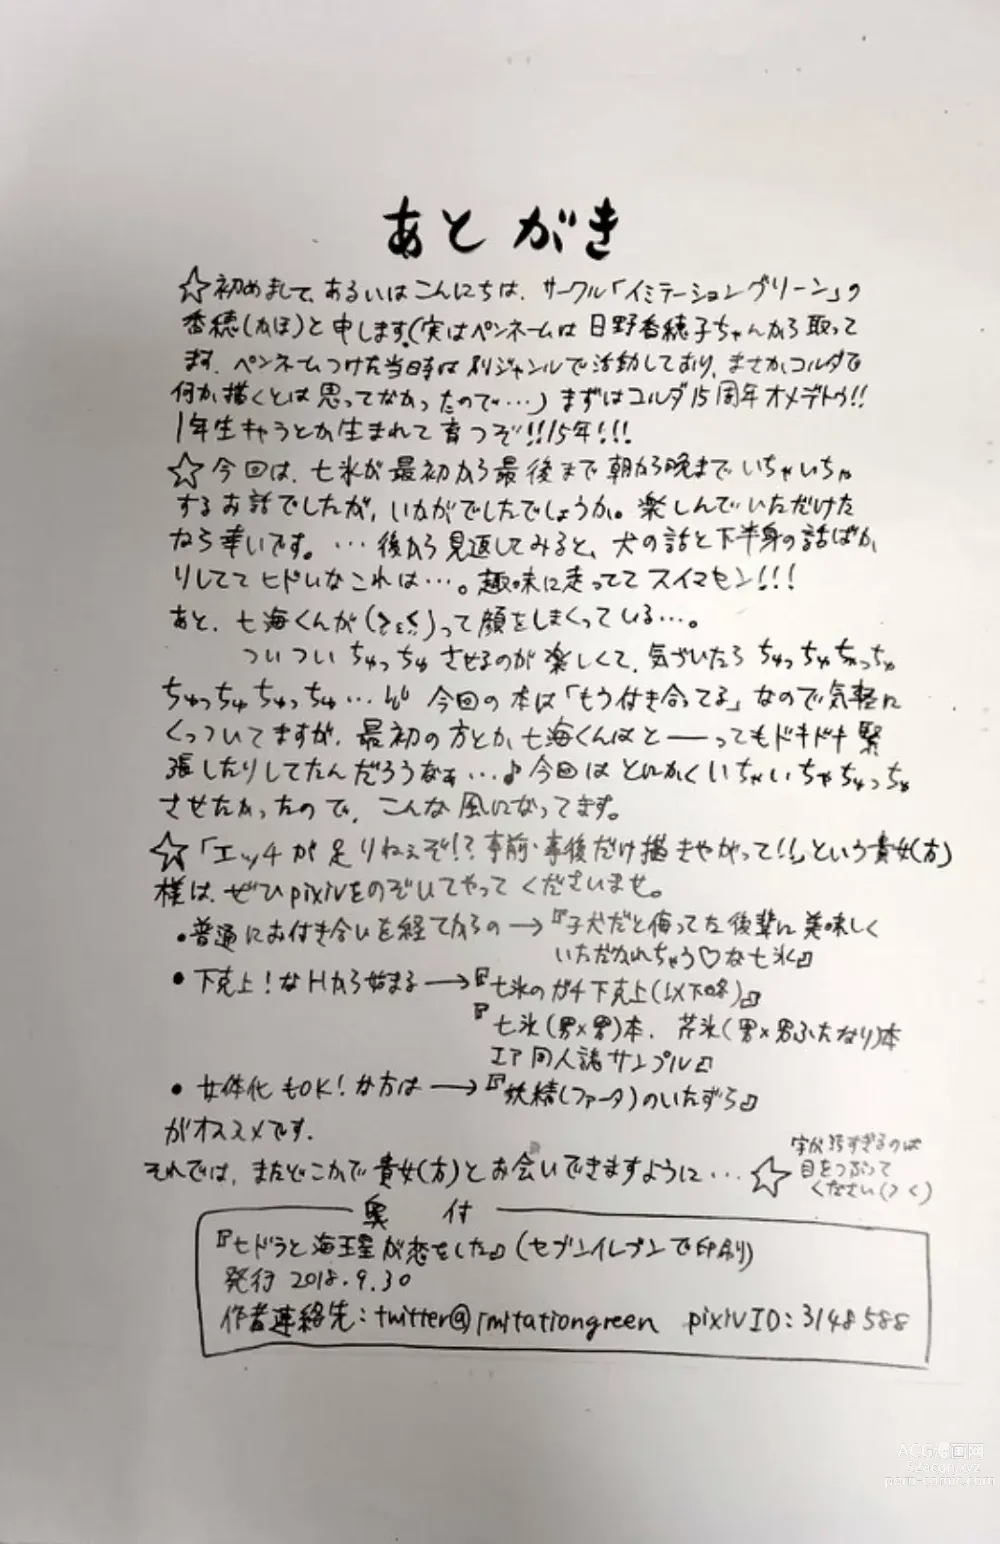 あとがき
☆初めまして、あるいはこんにちは、サークル「イミテーショングリーン」の
香穂(かほ)と申します。(実はペンネームは日野香穂子ちゃんから取って
ます。ペンネームつけた当時は別ジャンルで活動しており、まさかコルダで
何か描くとは思ってなかったので…)まずはコルダ15周年オメデトウ!!
1年生キャラとか生まれて育つぞ!!15年!!!
☆今回は、七氷が最初から最後まで朝から晩までいちゃいちゃ
するお話でしたが、いかがでしたでしょうか。楽しんでいただけた
なら幸いです。…後から見返してみると、犬の話と下半身の話ばか
りしててヒドいなこれは…。趣味に走っててスイマセン!!!
あと、七海くんが
って顔をしまくっている…。
ついついちゅっちゅさせるのが楽しくて、気づいたらちゅっちゅちゅっちゅ
ちゅっちゅちゅっちゅ…
今回の本は「もう付き合ってる」なので気軽に
くっついてますが、最初の方とか、七海くんはと――ってもドキドキ緊
張したりしてたんだろうなぁ…♪今回はとにかくいちゃいちゃちゅっちゅ
させたかったので、こんな風になってます。
☆「エッチが足りねぇぞ!?事前・事後だけ描きやがって!!」という貴女(方)
様は、ぜひpixivをのぞいてやってくださいませ。
・普通にお付き合いを経てからの→『子犬だと侮ってた後輩に美味しく
いただかれちゃう♡な七氷』
・下克上!なHから始まる→『七氷のガチ下克上(以下略)』
『七氷(男×男)本、芹氷(男×男ふたなり)本
エア同人誌サンプル』
・女体化もOK!な方は→『妖精(ファータ)のいたずら』
がオススメです。
それでは、またどこかで貴女(方)とお会いできますように…☆
字が汚すぎるのは
目をつぶって
ください(>く)
奥付
『七ドラと海王星が恋をした』(セブンイレブンで印刷)
発行 2018.9.30
作者連絡先:twitter@imitationgreen pixivID:3148588
ACG漫画网
acgn.xyz
porn-comic.com